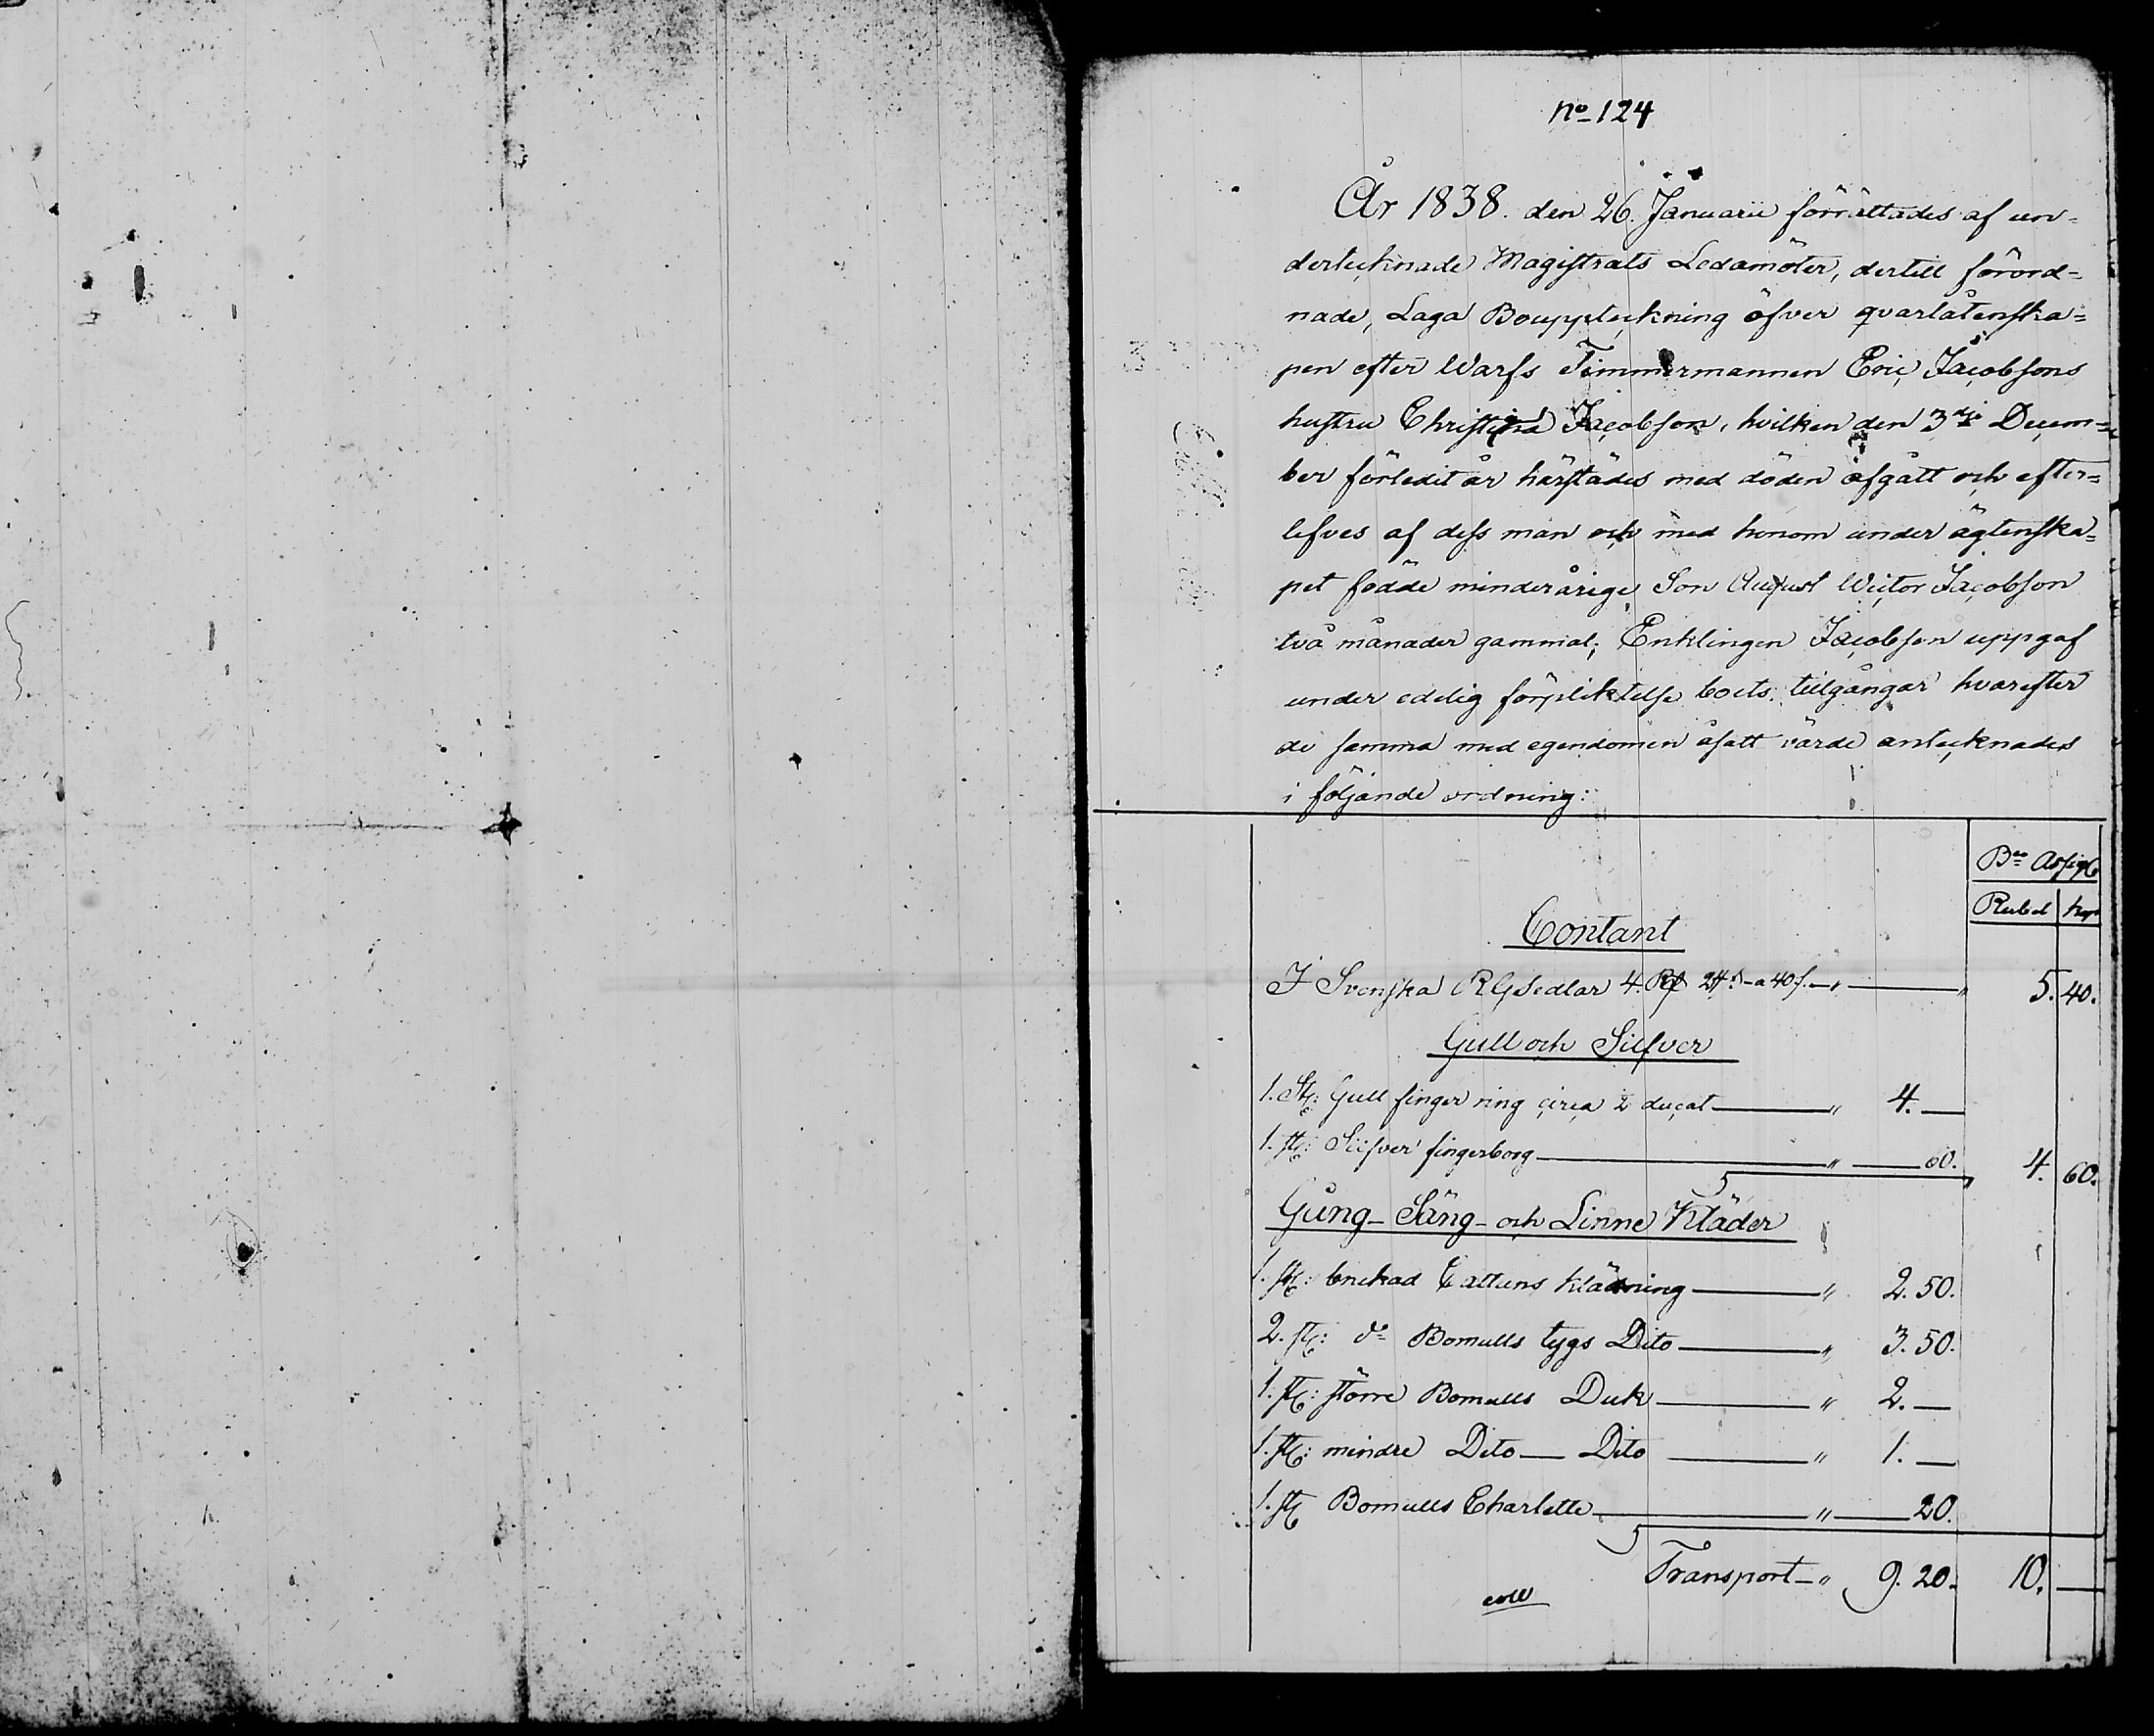 no 124
År 1838. den 26. Januarii förrättades af un=
dertecknade Magistrats Ledamöter, dertill förord=
nade, Laga Bouppteckning öfver qvarlåtenska=
pen efter Warfs Timmermannen Eric Jacobsons
hustru Christina Jacobson, hvilken den 3dje Decem=
ber förledit år härstädes med döden afgått och efter=
lefves af dess man och med honom under ägtenska=
pet födde minderårige Son August Victor Jacobson
två månader gammal; Enklingen Jacobson uppgaf
under edelig förpliktelse boets tillgångar hvarefter
de samma med egendomen åsatt värde antecknades
i följande ordning:
Bco Assig
Rubel kop
Contant
I Svenska RGsedlar 4. Rd 24 s. a 40 s. — " — " 5. 40.
Gull och Silfver
1. St: Gull finger ring circa ½ ducat — " 4. —
1. st: Silfver fingerborg — " — 60. 4. 60.
Gång- Säng- och Linne Kläder
1. st: brukad Cattuns klädning — " 2. 50.
2. st: do Bomulls tygs Dito — " 3. 50.
1. st: större Bomulls Duk — " 2. —
1. st: mindre Dito — Dito — " 1. —
1. st Bomulls Charlette — " — 20.
Transport — " 9. 20. 10. —